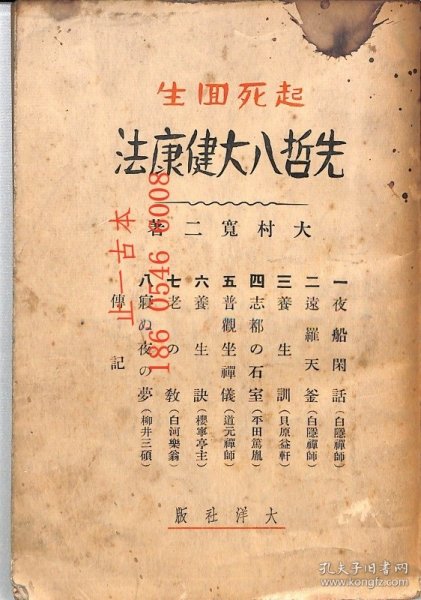 起死回生
先哲八大健康法
大村寬二著
一夜船閑話(白隱禪師)
二遠羅天釜(白隱禪師)
三養生訓(貝原益軒)
四志都の石室(平田篤胤)
五普觀坐禪儀(道元禪師)
六養生訣(櫻寧亭主)
七老の敎(白河樂翁)
八寢ぬ夜の夢(柳井三碩)
傳記
大洋社版
止一古本
186 0546 0008
孔夫子旧书网